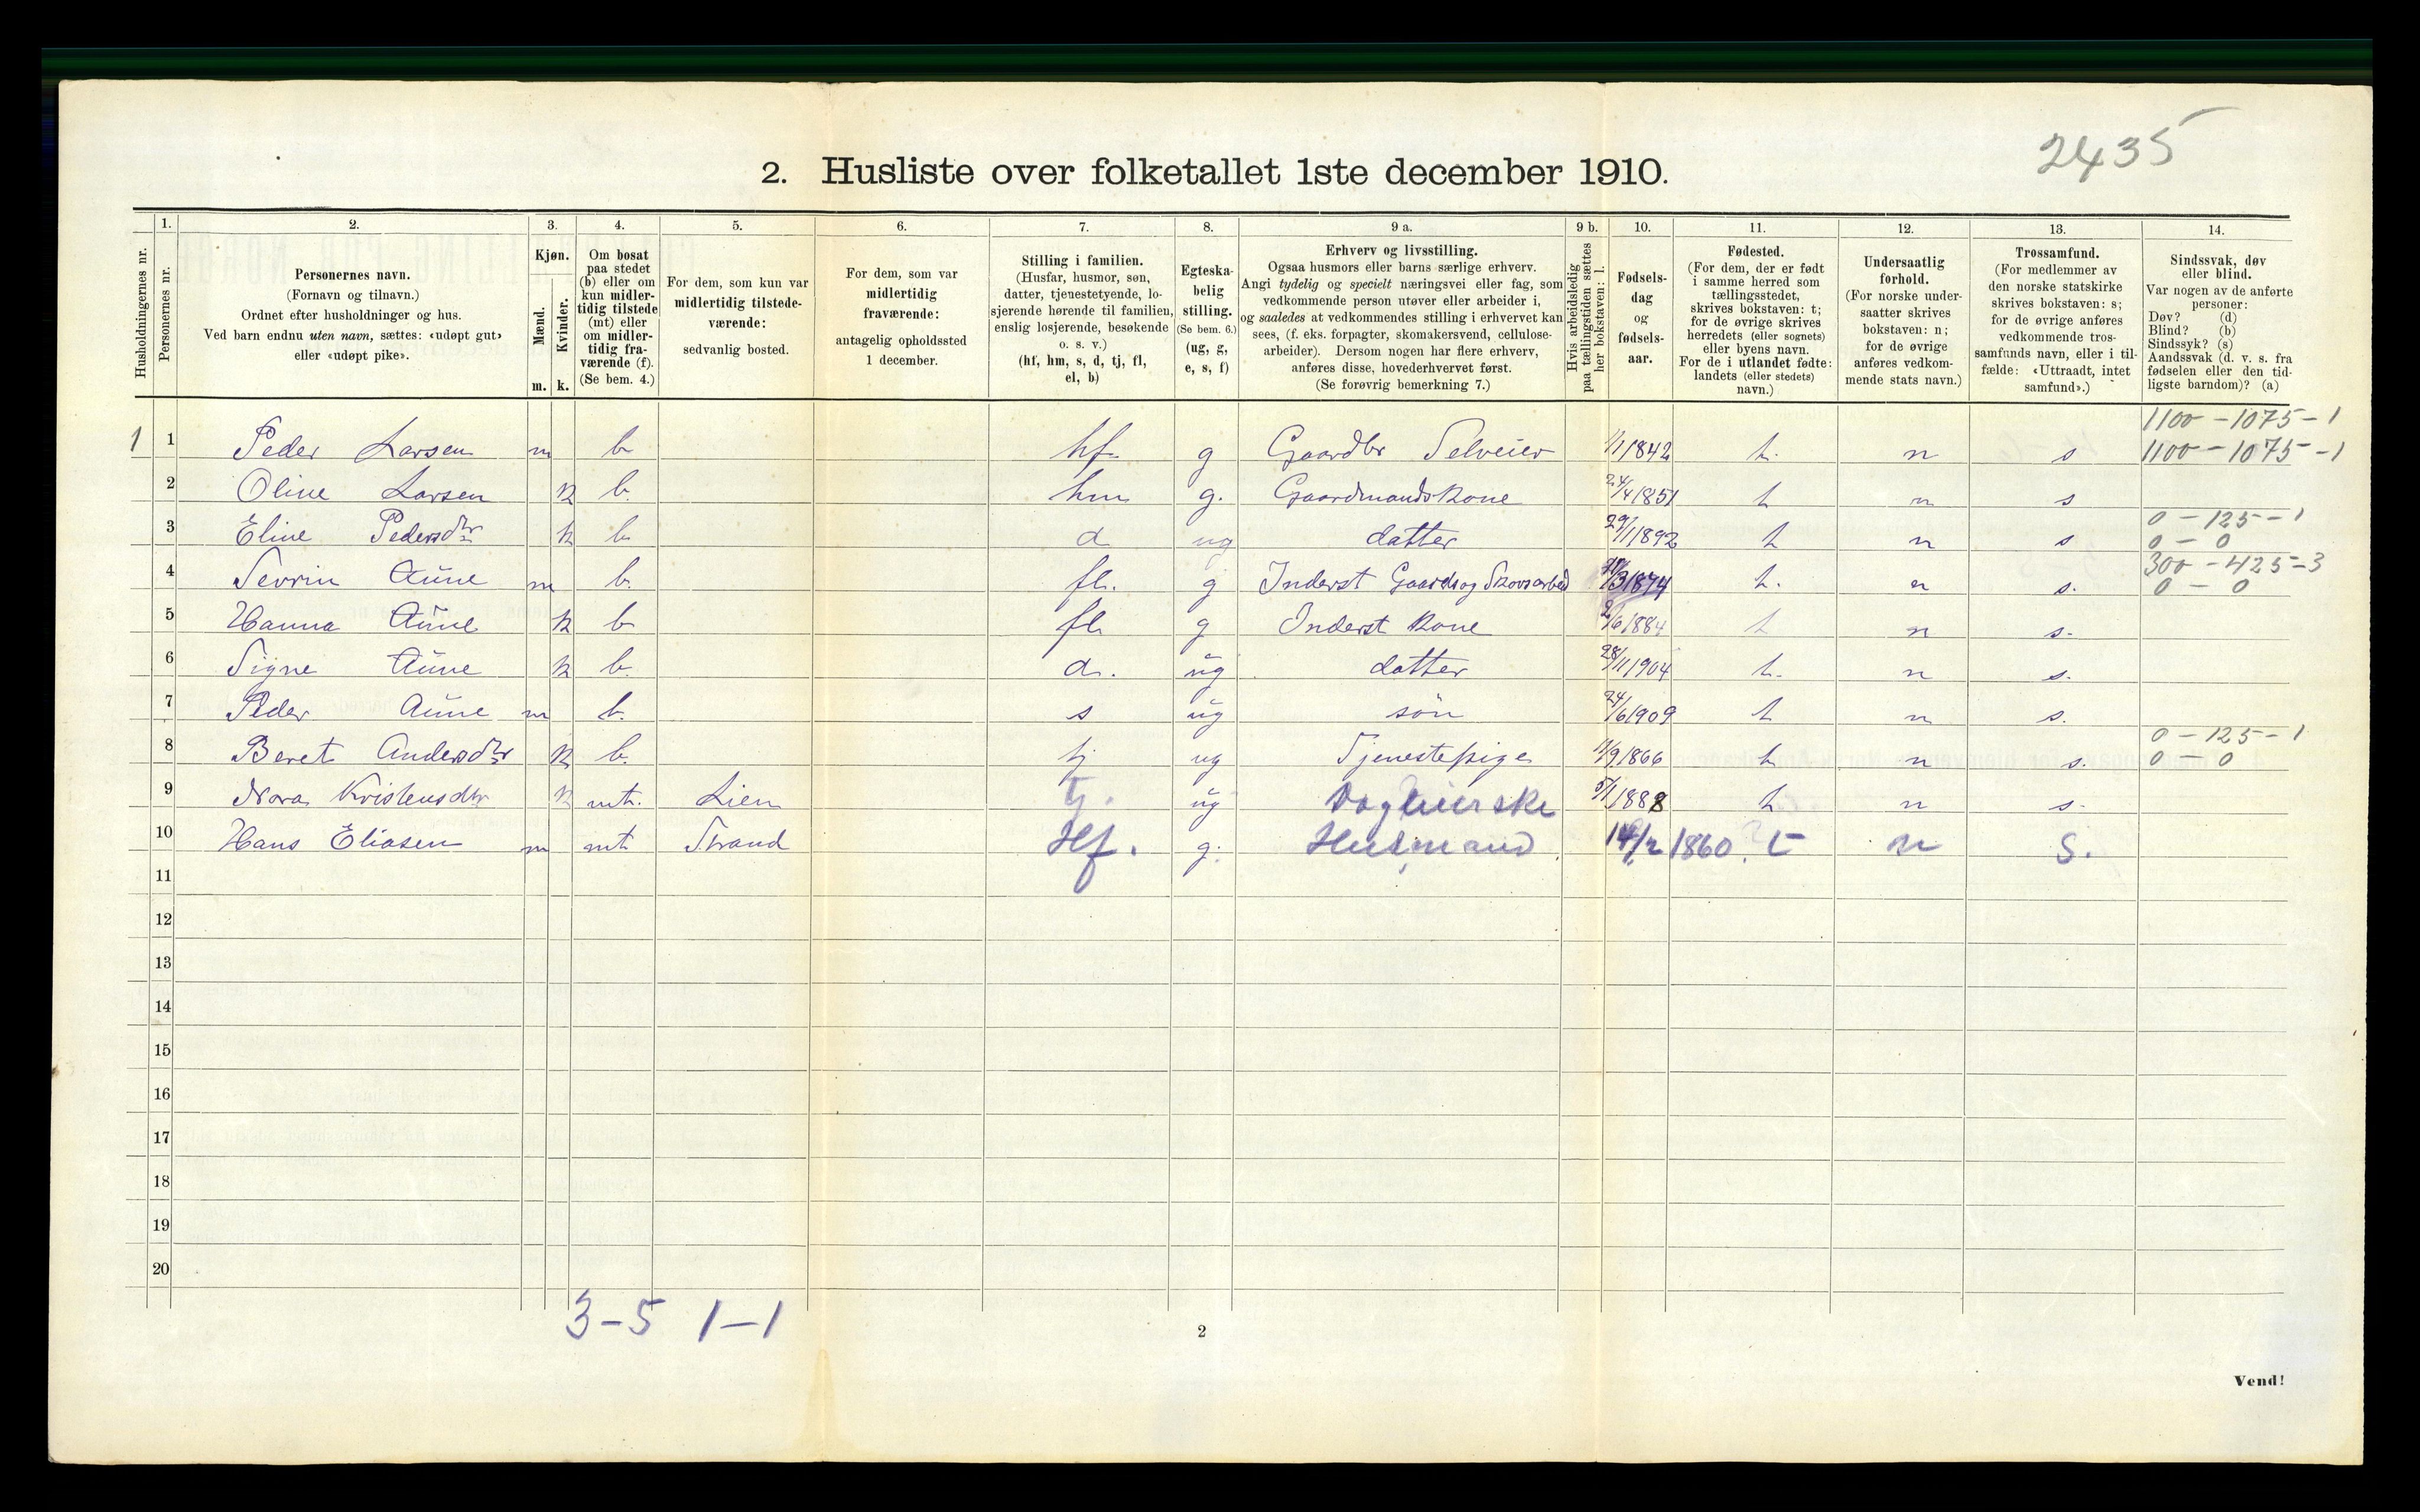 2435
2. Husliste over folketallet 1ste december 1910.
Husholdningernes nr.
1.
Personernes nr.
2.
Personernes navn.
(Fornavn og tilnavn.)
Ordnet efter husholdninger og hus.
Ved barn endnu uten navn, sættes: «udøpt gut»
eller «udøpt pike».
3.
Kjøn.
Mænd.
Kvinder.
m. k.
4.
Om bosat
paa stedet
(b) eller om
kun midler-
tidig tilstede
(mt) eller
om midler-
tidig fra-
værende (f).
(Se bem. 4.)
5.
For dem, som kun var
midlertidig tilstede-
værende:
sedvanlig bosted.
6.
For dem, som var
midlertidig
fraværende:
antagelig opholdssted
1 december.
7.
Stilling i familien.
(Husfar, husmor, søn,
datter, tjenestetyende, lo-
sjerende hørende til familien,
enslig losjerende, besøkende
o. s. v.)
(hf, hm, s, d, tj, fl,
el, b)
8.
Egteska-
belig
stilling.
(Se bem. 6.)
(ug, g,
e, s, f)
9 a.
Erhverv og livsstilling.
Ogsaa husmors eller barns særlige erhverv.
Angi tydelig og specielt næringsvei eller fag, som
vedkommende person utøver eller arbeider i,
og saaledes at vedkommendes stilling i erhvervet kan
sees, (f. eks. forpagter, skomakersvend, cellulose-
arbeider). Dersom nogen har flere erhverv,
anføres disse, hovederhvervet først.
(Se forøvrig bemerkning 7.)
9 b.
Hvis arbeidsledig
paa tællingstiden sættes
her bokstaven: l.
10.
Fødsels-
dag
og
fødsels-
aar.
11.
Fødested.
(For dem, der er født
i samme herred som
tællingsstedet,
skrives bokstaven: t;
for de øvrige skrives
herredets (eller sognets)
eller byens navn.
For de i utlandet fødte:
landets (eller stedets)
navn.)
12.
Undersaatlig
forhold.
(For norske under-
saatter skrives
bokstaven: n;
for de øvrige
anføres vedkom-
mende stats navn.)
13.
Trossamfund.
(For medlemmer av
den norske statskirke
skrives bokstaven: s;
for de øvrige anføres
vedkommende tros-
samfunds navn, eller i til-
fælde: «Uttraadt, intet
samfund».)
14.
Sindssvak, døv
eller blind.
Var nogen av de anførte
personer:
Døv? (d)
Blind? (b)
Sindssyk? (s)
Aandssvak (d. v. s. fra
fødselen eller den tid-
ligste barndom)? (a)
1100 - 1075 - 1
1 1 Peder Larsen m b hf. g Gaardbr Selveier 1/1 1842 t. n s 1100 - 1075 - 1
2 Oline Larsen k b. hm g. Gaardmandskone 24/4 1851 t n s
0 - 125 - 1
3 Eline Pedersdtr k b d ug datter 29/1 1892 t n s 0 - 0
300 - 425 - 3
4 Sevrin Aune m b. fl. g Inderst Gaards og Skovsarbeid /3 1874 t. n s. 0 - 0
5 Hanna Aune k b fl g Inderst Kone 2/6 1884 t n s.
6 Signe Aune k b. d. ug datter 28/11 1904 t. n s.
7 Peder Aune m b. s ug søn 24/6 1909 t n s.
0 - 125 - 1
8 Beret Andersdtr k b. tj ug Tjenestepige 11/9 1866 t n s. 0 - 0
9 Nora Kristensdtr k mt. Lien tj. ug 5/1 1888 t n s.
10 Hans Eliasen m mt Strand Hf. g. Husmand. 14/2 1860. t n s.
11
12
13
14
15
16
17
18
19
20
3-5 1-1
2
Vend!